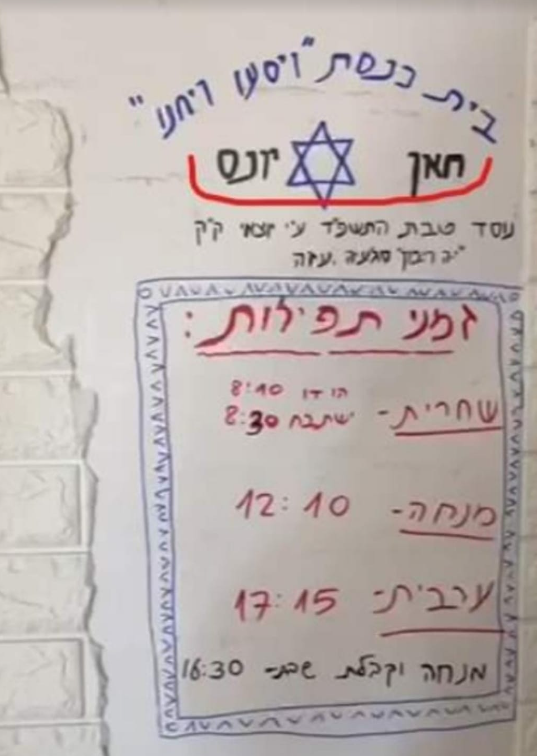 בית כנסת "ויסעו ויחנו"
חאן יונס
נוסד טבת התשפ"ד ע"י יוצאי ק"ק
עזה
זמני תפילות:
שחרית- הודו 8:10
ישתבח 8:30
מנחה- 12:10
ערבית- 17:15
מנחה וקבלת שבת- 16:30